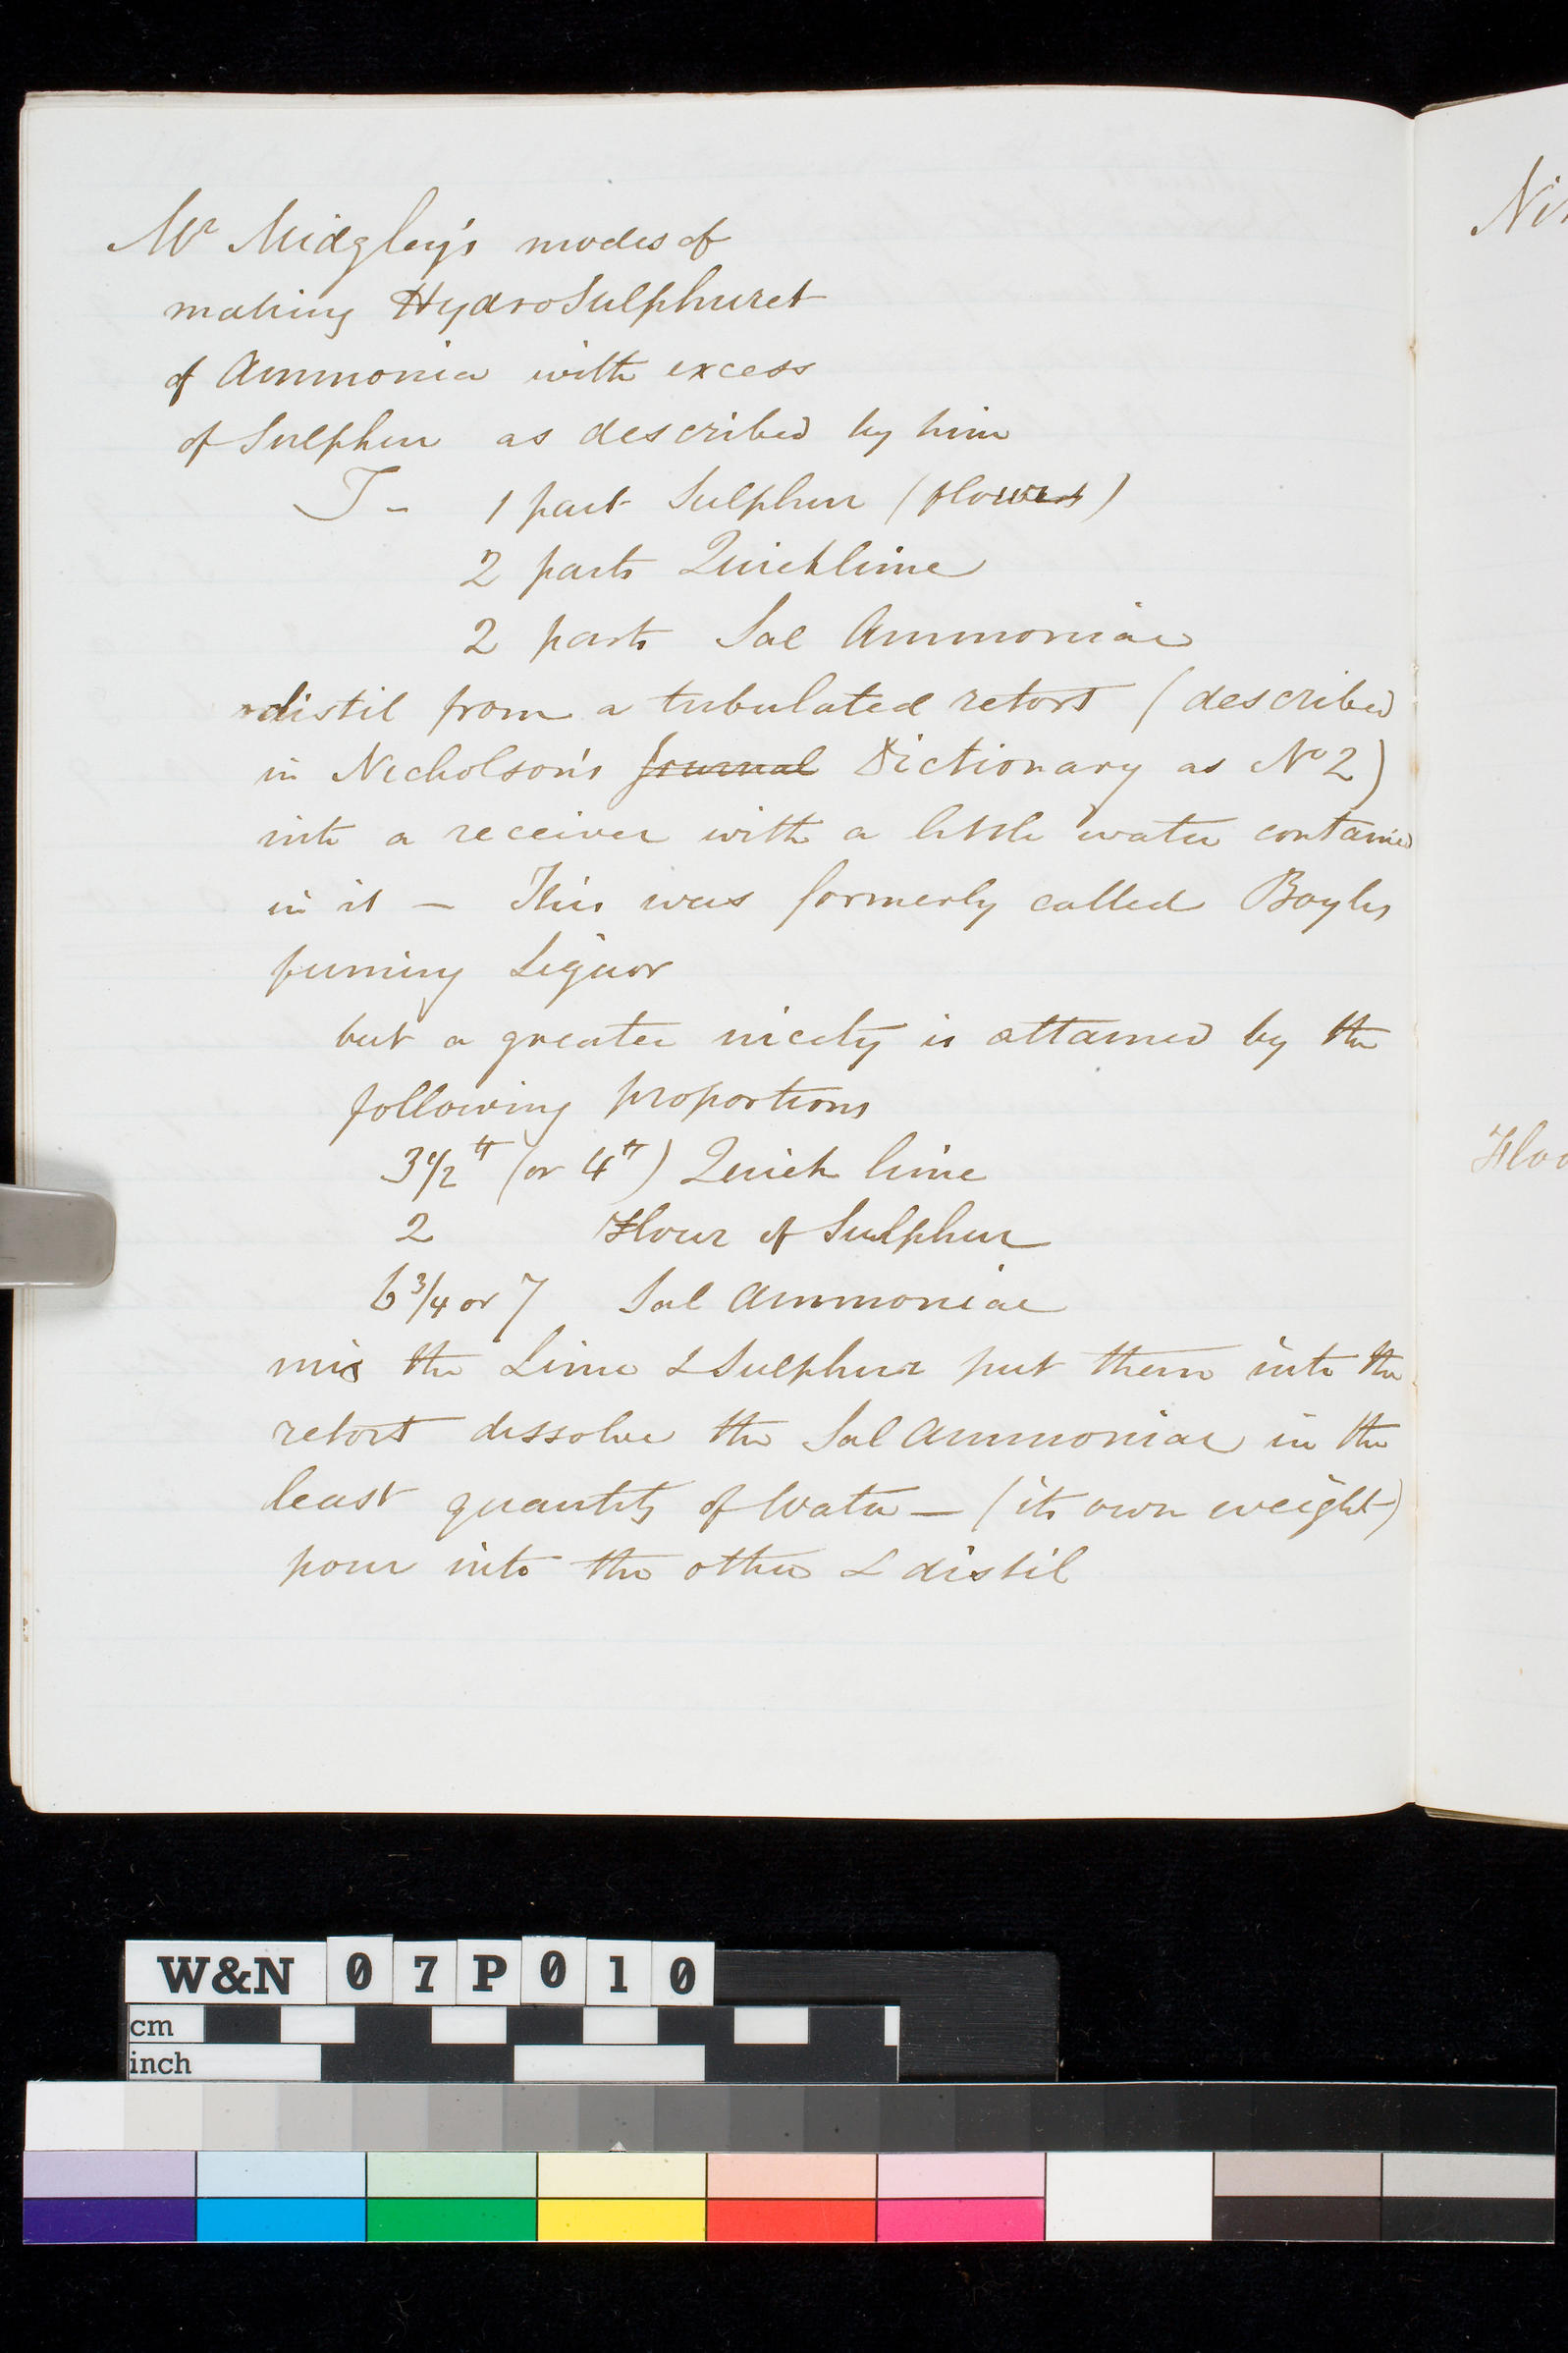 Mr Midgley's modes of
making HydroSulphuret
of Ammonia with excess
of Sulphur as described by him
T - 1 part Sulphur (flowers)
2 parts Quicklime
2 parts Sal Ammoniac
distil from a tubulated retort (described
in Nicholson's Journal Dictionary as No 2)
into a receiver with a little water contained
in it — This was formerly called Boyles
fuming Liquor
but a greater nicety is attained by the
following proportions
3 1/2 lb (or 4 lb) Quick lime
2 Flour of Sulphur
6 3/4 or 7 Sal Ammoniac
mix the Lime & Sulphur put them into the
retort dissolve the Sal Ammoniac in the
least quantity of Water — (its own weight)
pour into the other & distil
Ni
Flo
W&N 07P010
cm
inch